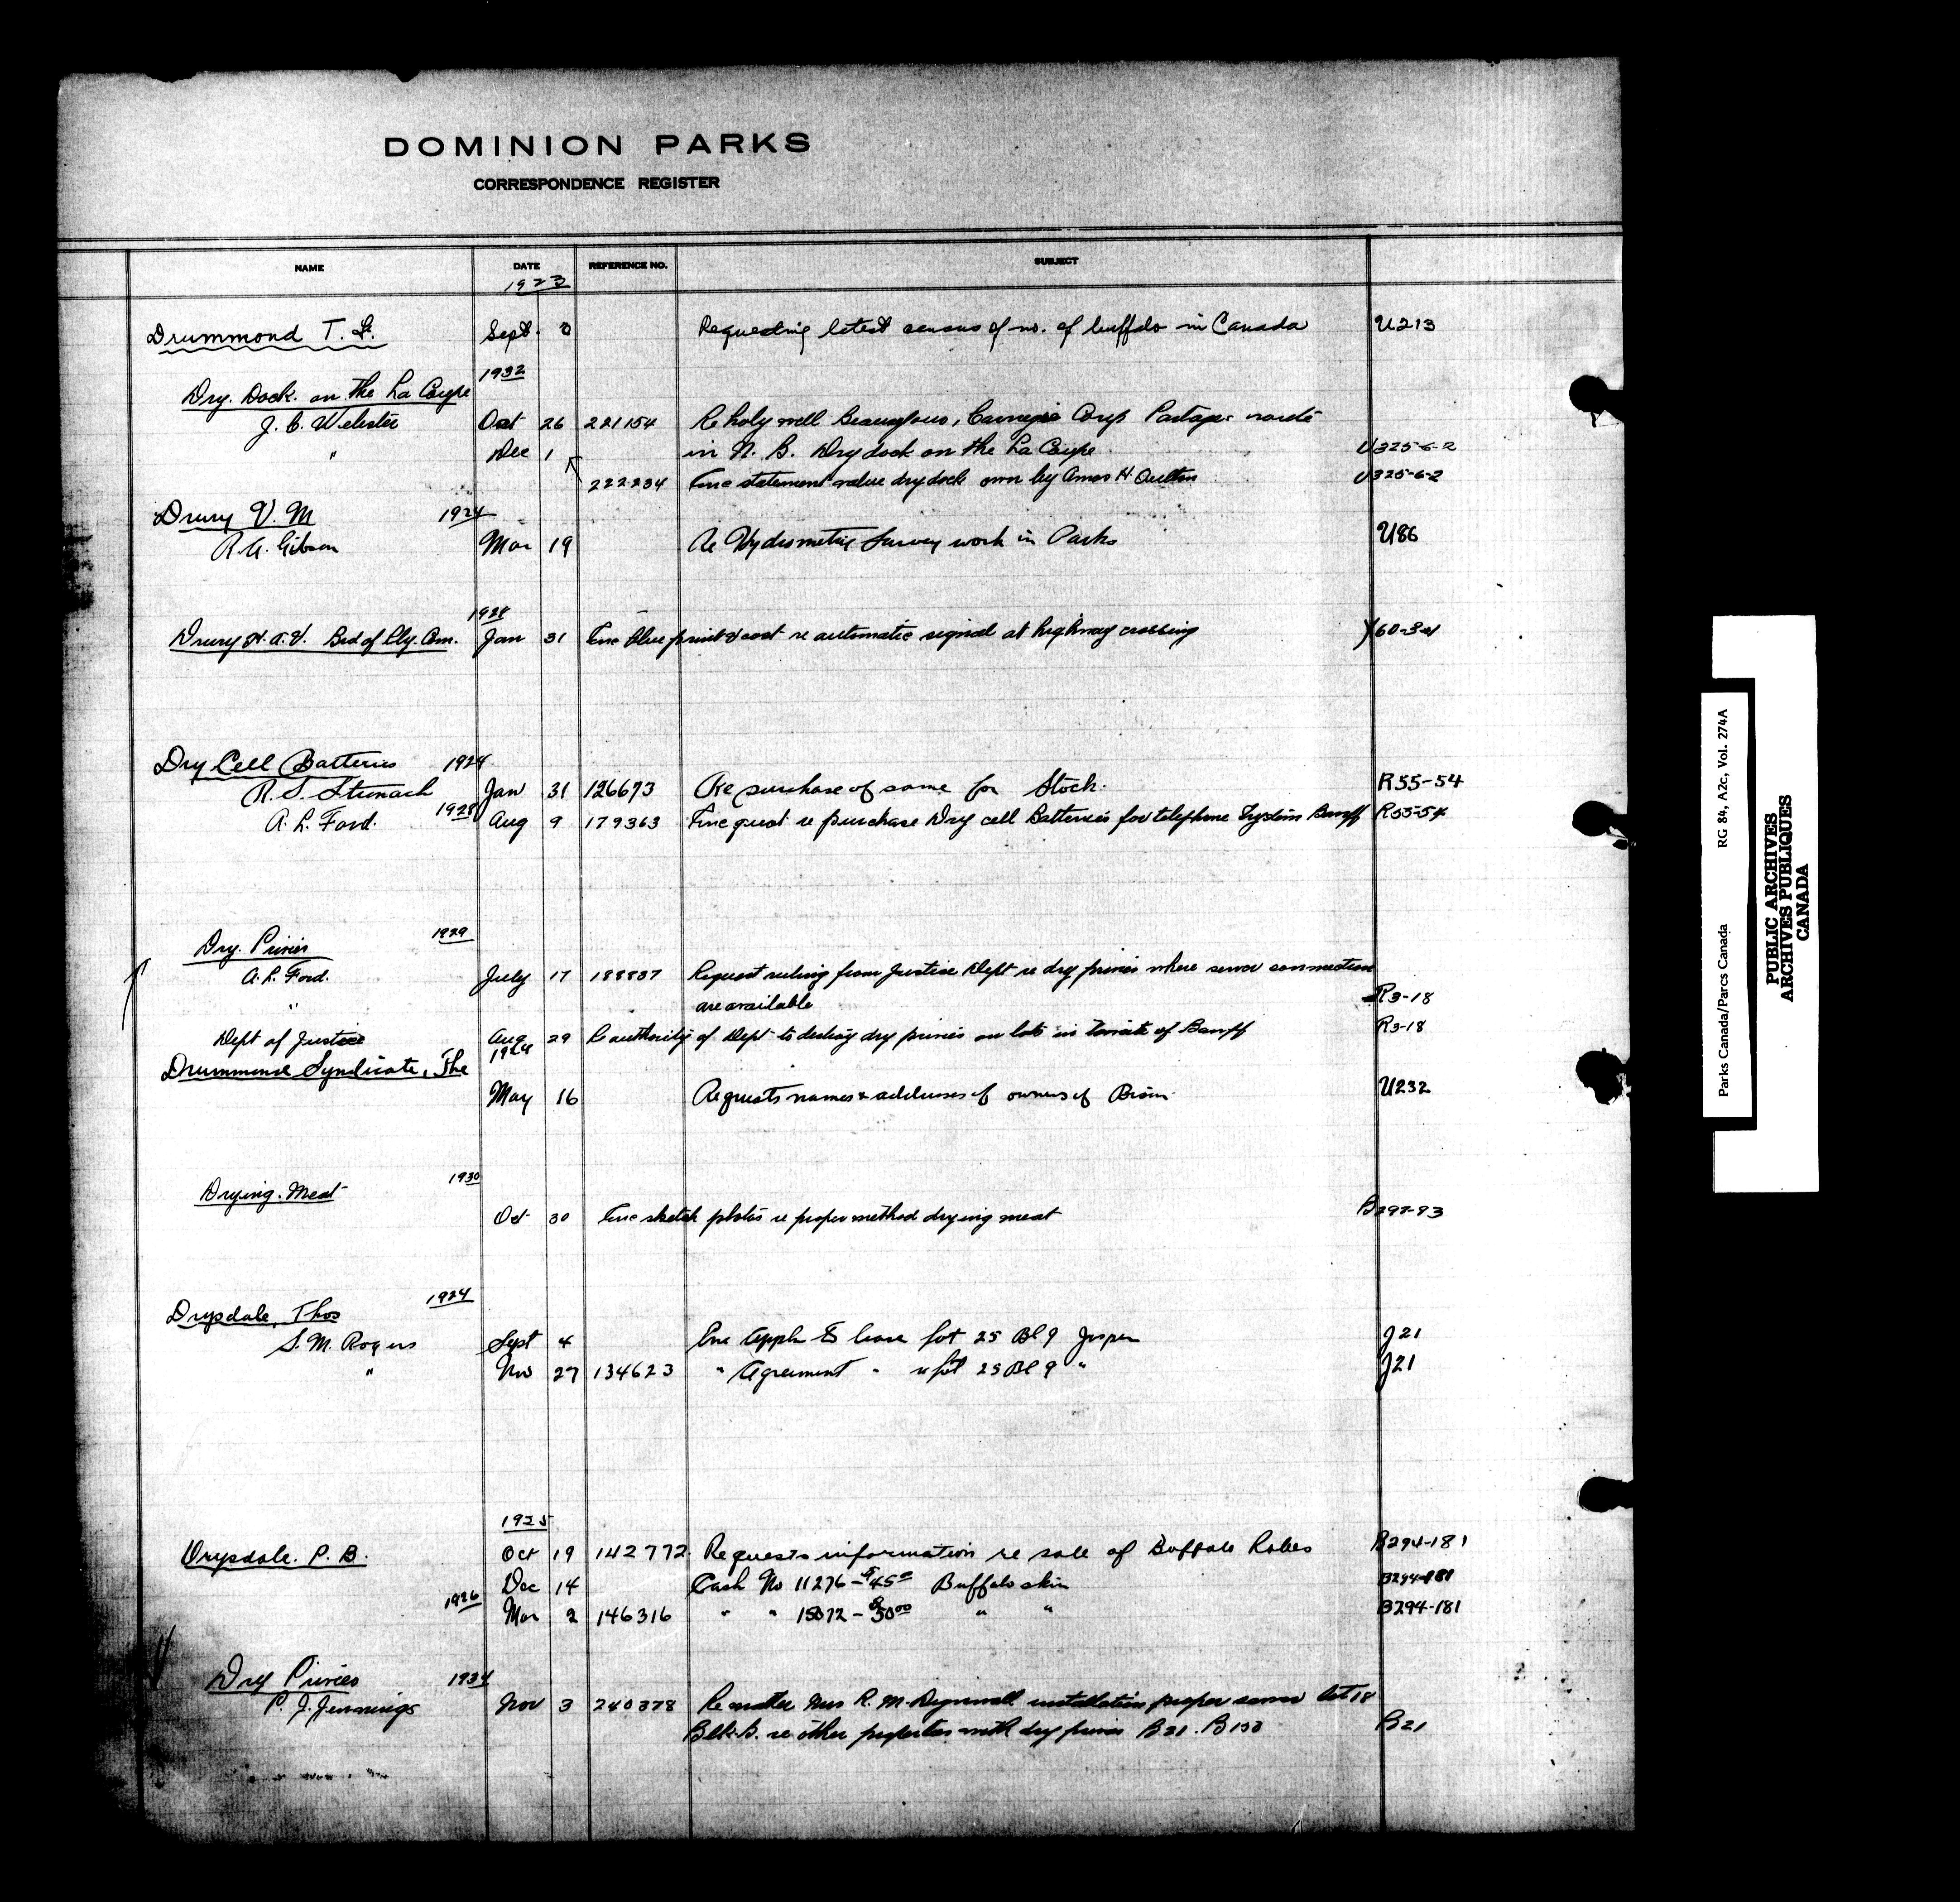 DOMINION PARKS
CORRESPONDENCE REGISTER
NAME DATE REFERENCE NO. SUBJECT
1923
Drummond T. Sept. Requesting latest census of no. of buffalo in Canada U213
1932
Dry. Dock. on the La Coupe
J. C. Webster Oct 26 221154 Re holy well Beausejour, Carnegie Corp Portage route
" Dec 1 in N. B. Dry dock on the La Coupe. U325-6-2
222234 Enc statement value dry dock own by Amos H. Oulton U325-6-2
Drury V. M 1924
R. A. Gibson Mar 19 Re Hydrometric Survey work in Parks U86
1928
Drury H. A. V. Brd of Rly. Com. Jan 31 Enc blue print & cost re automatic signal at highway crossing Y60-3-
Dry Cell Batteries 1924
R. S. Stronach Jan 31 126673 Re purchase of same for Stock. R55-54
A. L. Ford. 1928 Aug 9 179363 Enc quot re purchase Dry cell Batteries for telephone System Banff R55-54
Dry. Privies 1929
A. L. Ford. July 17 188837 Request ruling from Justice Dept re dry privies where sewer connections
" are available R3-18
Dept of Justice Aug 29 Re authority of Dept to destroy dry privies on lots in Townsite of Banff R3-18
1924
Drummond Syndicate, The
May 16 Requests names & addresses of owners of Bison. U232
Drying. Meat 1930
Oct 30 Enc sketch photos re proper method drying meat B297-93
Drysdale, Thos 1924
S. M. Rogers Sept 4 Enc appln to lease lot 25 Bl 9 Jasper J21
" Nov 27 134623 " Agreement " re lot 25 Bl 9 " J21
1925
Drysdale. P. B. Oct 19 142772 Requests information re sale of Buffalo Robes B294-181
Dec 14 Cash No 11276 - $45 Buffalo skin B294-181
1926 Mar 2 146316 " " 15072 - $50.00 " " B294-181
Dry Privies 1934
P. J. Jennings Nov 3 240378 Re matter Mrs R. M. installation proper sewer Lot 18
Blk. B. re other properties with dry privies B21. B21
PUBLIC ARCHIVES
ARCHIVES PUBLIQUES
CANADA
Parks Canada/Parcs Canada RG 84, A2c, Vol. 274A